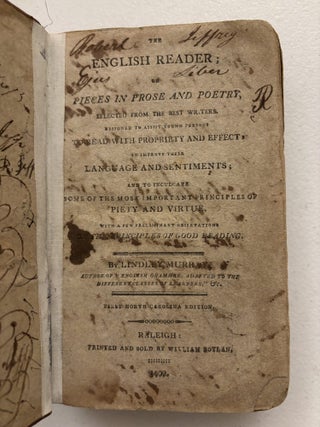 THE
Robert Jeffrey
ENGLISH READER;
Ejus Liber
OR
PIECES IN PROSE AND POETRY,
SELECTED FROM THE BEST WRITERS.
DESIGNED TO ASSIST YOUNG PERSONS
TO READ WITH PROPRIETY AND EFFECT;
TO IMPROVE THEIR
LANGUAGE AND SENTIMENTS;
AND TO INCULCATE
SOME OF THE MOST IMPORTANT PRINCIPLES OF
PIETY AND VIRTUE.
WITH A FEW PRELIMINARY OBSERVATIONS
PRINCIPLES OF GOOD READING.
BY LINDLEY MURRAY,
AUTHOR OF "ENGLISH GRAMMAR, ADAPTED TO THE
DIFFERENT CLASSES OF LEARNERS," &c.
FIRST NORTH-CAROLINA EDITION.
RALEIGH:
PRINTED AND SOLD BY WILLIAM BOYLAN,